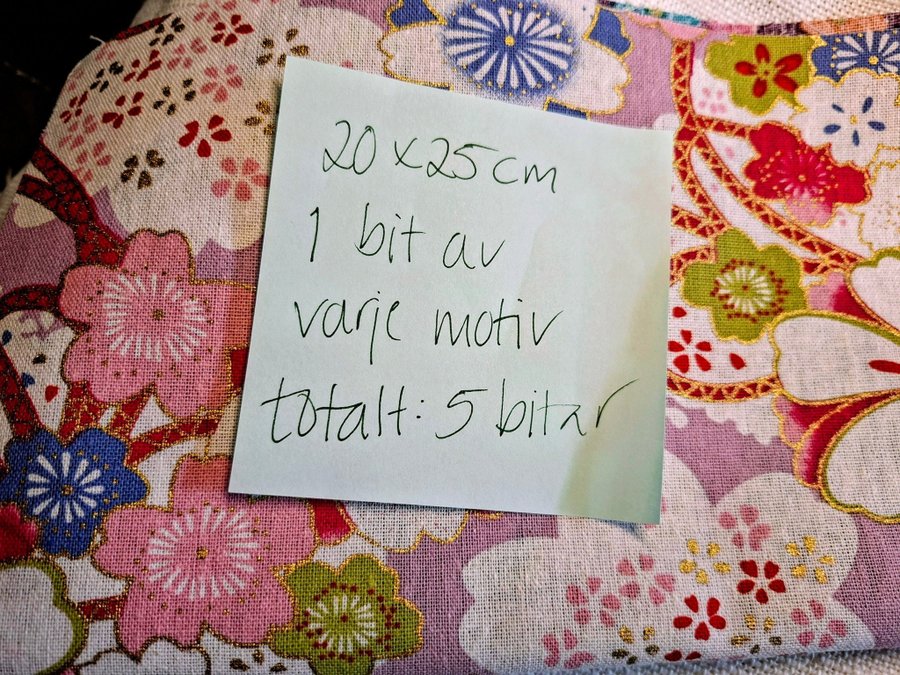 20 x 25 cm
1 bit av
varje motiv
totalt: 5 bitar